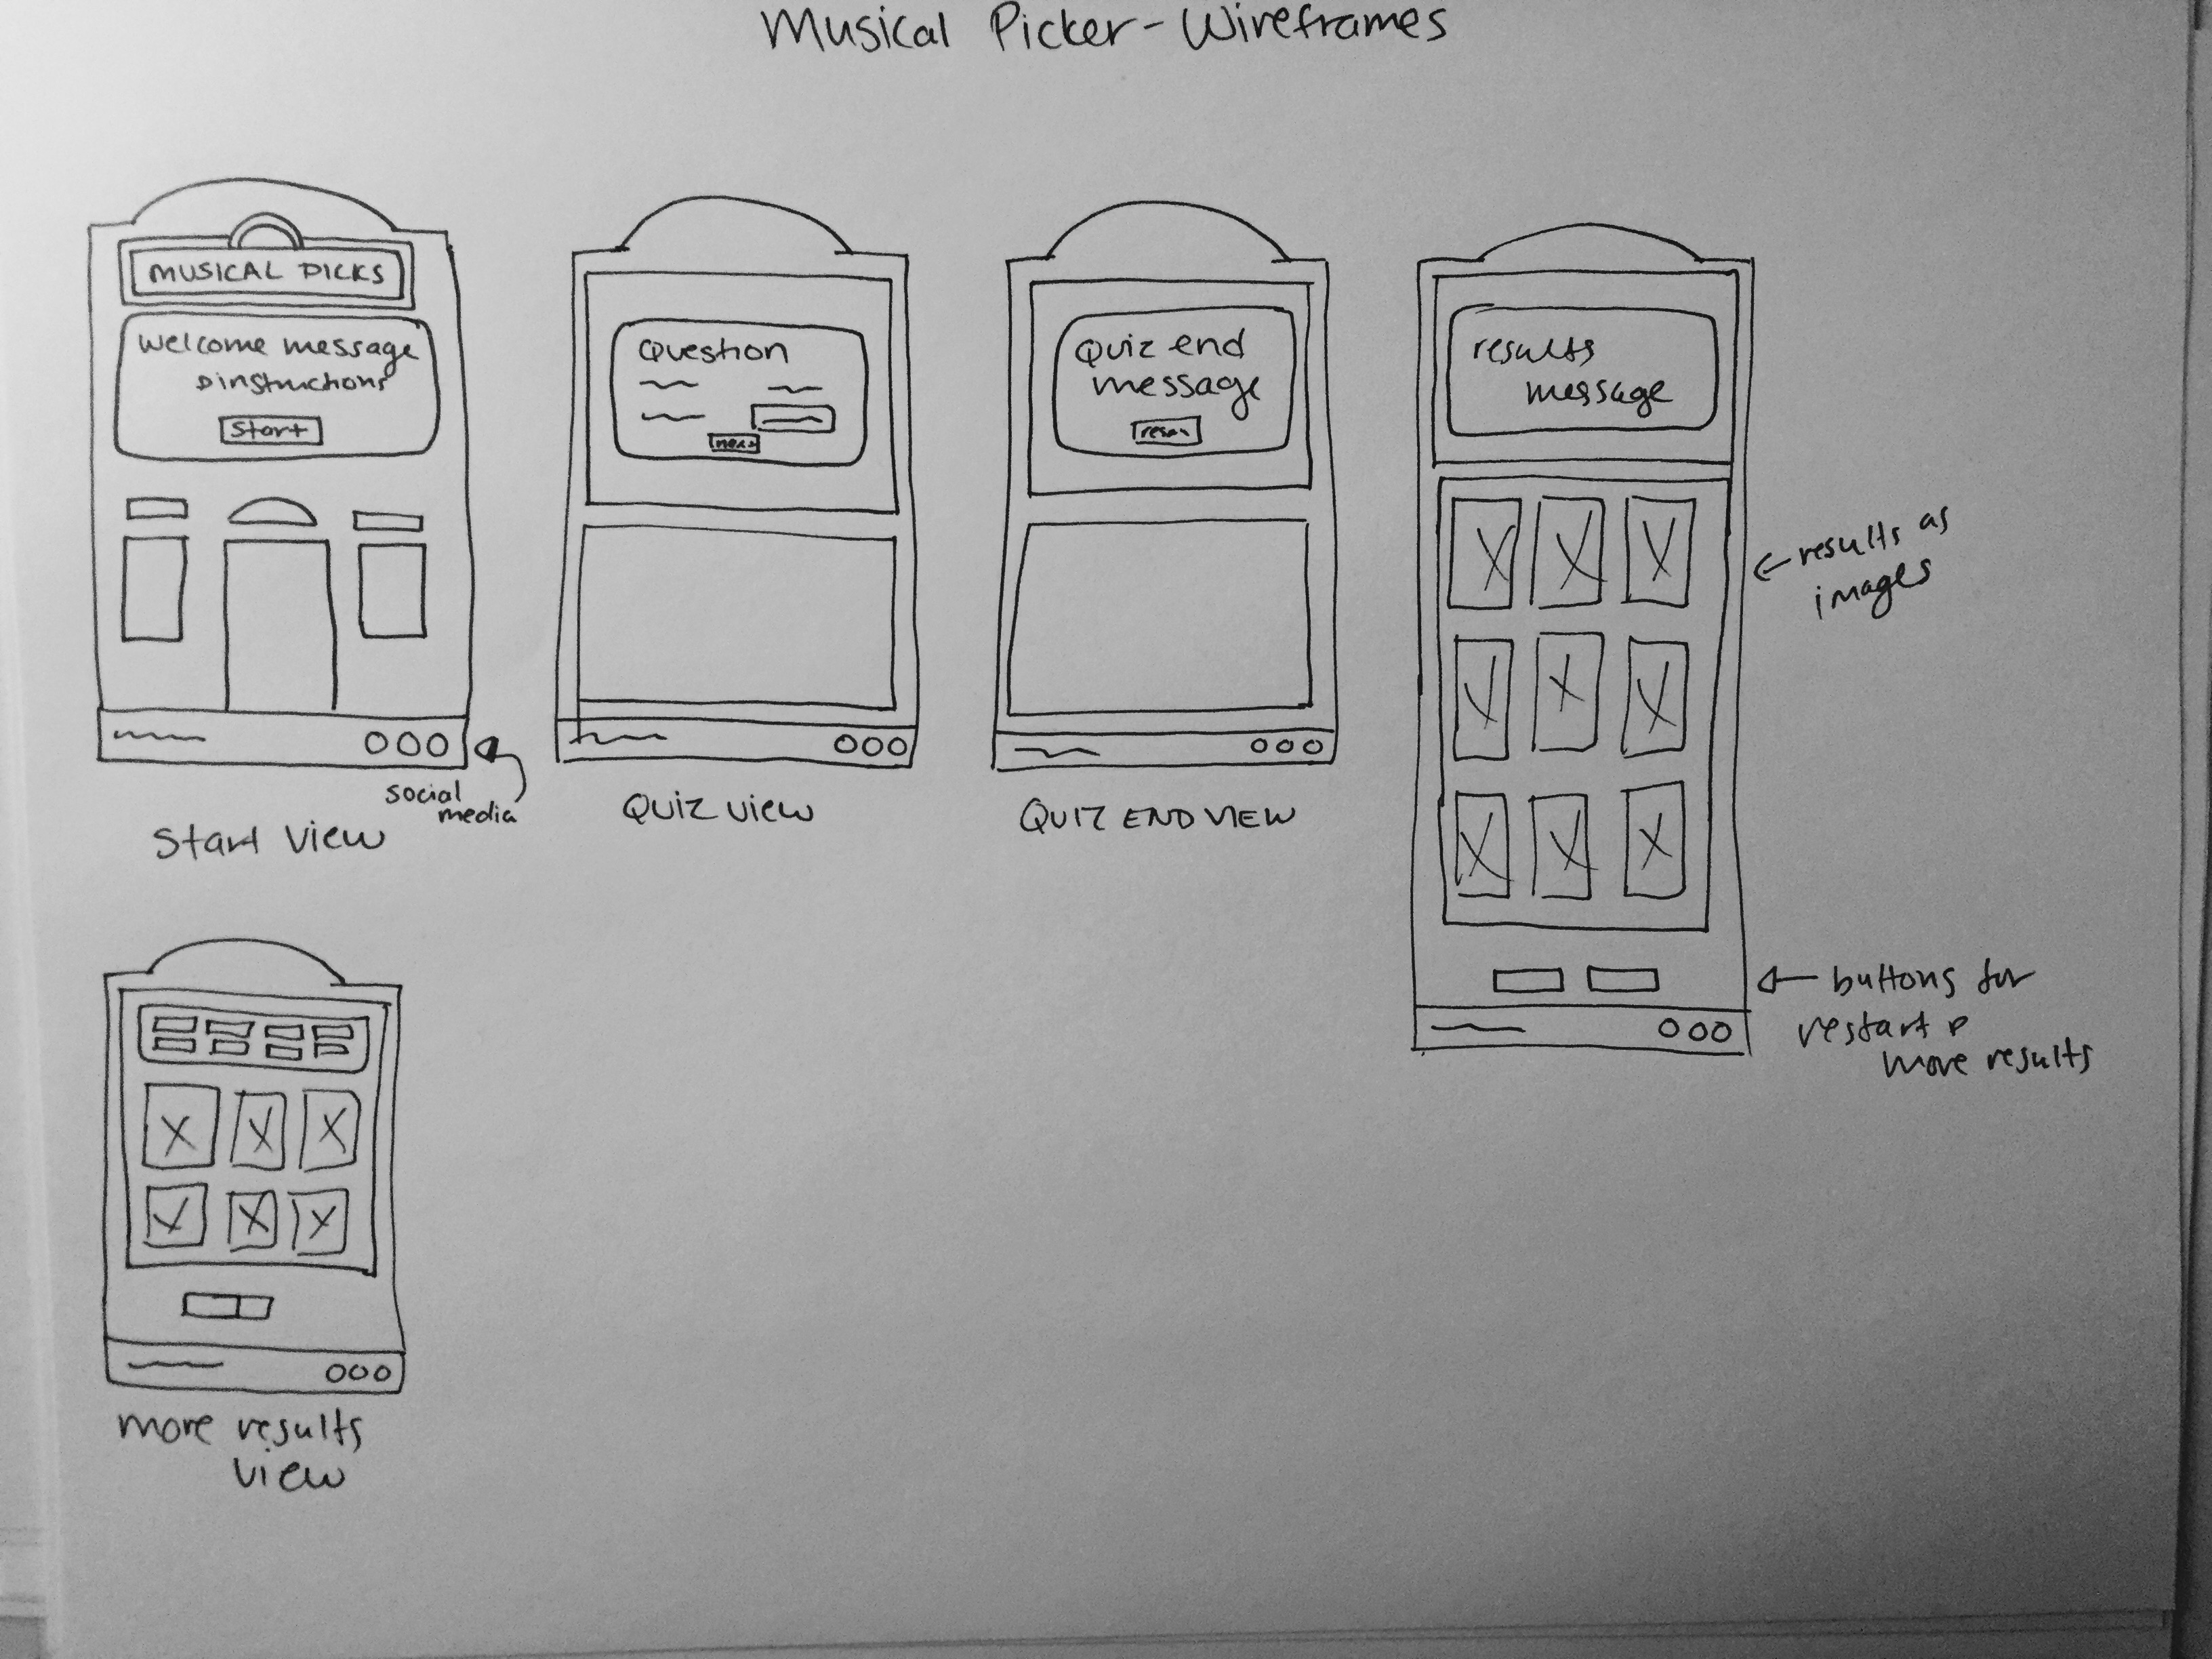 Musical Picker - Wireframes
MUSICAL PICKS
Welcome message
& instructions
Start
social
media
Start View
Question
next
QUIZ VIEW
Quiz end
message
QUIZ END VIEW
results
message
results as
images
buttons for
restart &
more results
more results
view